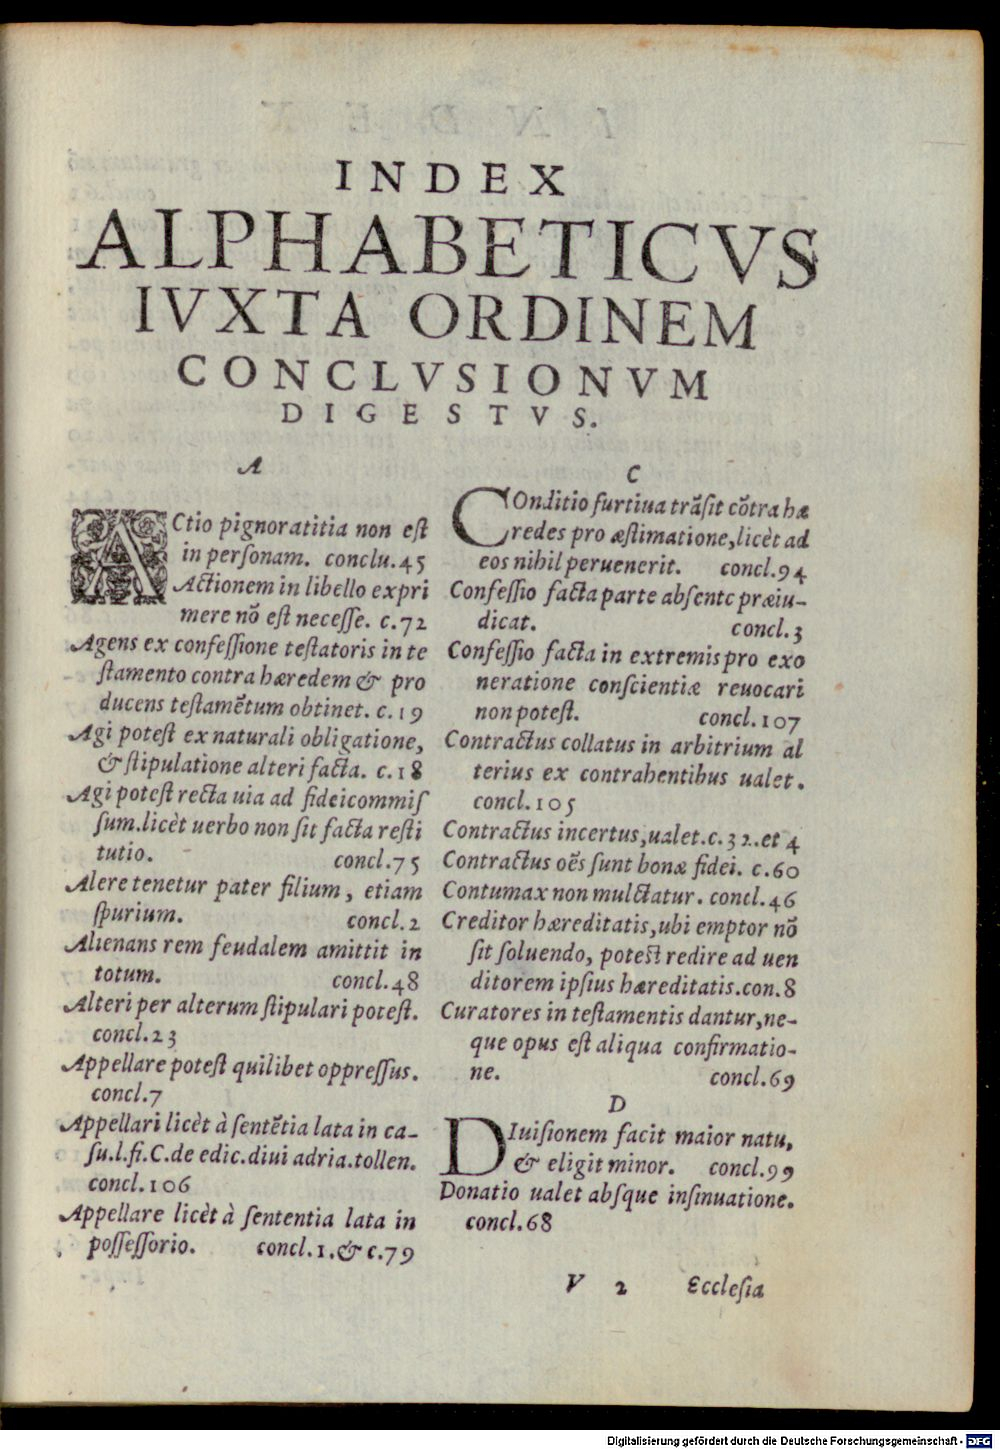 INDEX
ALPHABETICVS
IVXTA ORDINEM
CONCLVSIONVM
DIGESTVS.
A
ACtio pignoratitia non eſt
in perſonam. conclu.45
Actionem in libello expri
mere nō eſt neceſſe. c.72
Agens ex confeſſione teſtatoris in te
ſtamento contra hæredem & pro
ducens teſtamētum obtinet. c.19
Agi poteſt ex naturali obligatione,
& ſtipulatione alteri facta. c.18
Agi poteſt recta uia ad fideicommiſ
ſum.licèt uerbo non ſit facta reſti
tutio. concl.75
Alere tenetur pater filium, etiam
ſpurium. concl.2
Alienans rem feudalem amittit in
totum. concl.48
Alteri per alterum ſtipulari poteſt.
concl.23
Appellare poteſt quilibet oppreſſus.
concl.7
Appellari licèt à ſentētia lata in ca-
ſu.l.fi.C.de edic.diui adria.tollen.
concl.106
Appellare licèt à ſententia lata in
poſſeſſorio. concl.1.& c.79
C
COnditio furtiua trāſit cōtra hæ
redes pro æſtimatione,licèt ad
eos nihil peruenerit. concl.94
Confeſſio facta parte abſente præiu-
dicat. concl.3
Confeſſio facta in extremis pro exo
neratione conſcientiæ reuocari
non poteſt. concl.107
Contractus collatus in arbitrium al
terius ex contrahentibus ualet.
concl.105
Contractus incertus,ualet.c.32.et 4
Contractus oēs ſunt bonæ fidei. c.60
Contumax non mulctatur. concl.46
Creditor hæreditatis,ubi emptor nō
ſit ſoluendo, poteſt redire ad uen
ditorem ipſius hæreditatis.con.8
Curatores in teſtamentis dantur,ne-
que opus eſt aliqua confirmatio-
ne. concl.69
D
DIuiſionem facit maior natu,
& eligit minor. concl.99
Donatio ualet abſque inſinuatione.
concl.68
V 2 Eccleſia
Digitalisierung gefördert durch die Deutsche Forschungsgemeinschaft - DFG